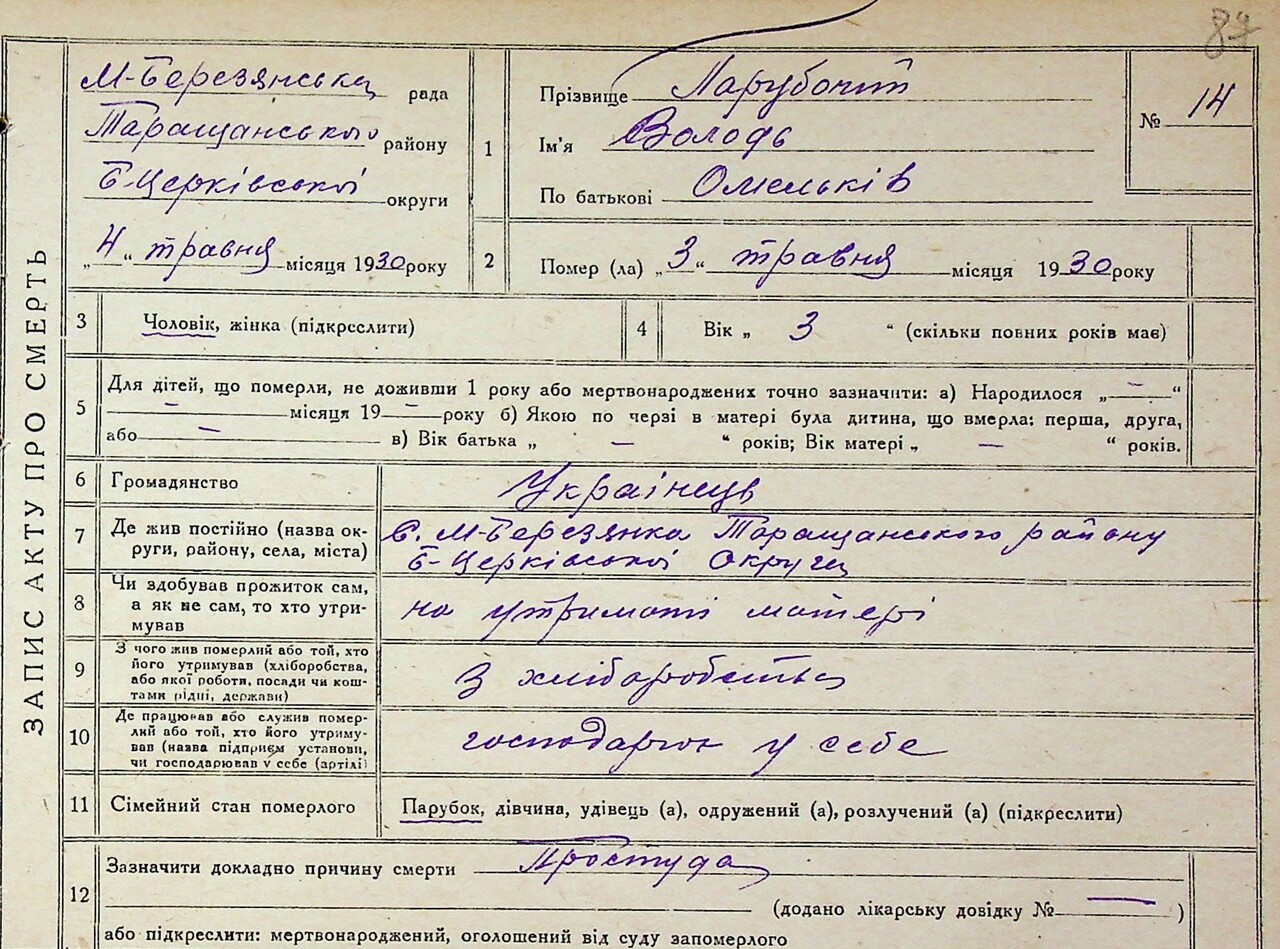 87
ЗАПИС АКТУ ПРО СМЕРТЬ
М-Березянська рада
Таращанського району
Б-Церківської округи
„4“ травня місяця 1930 року
1
Прізвище Парубочий
Ім'я Володь
По батькові Омельків
№ 14
2
Помер (ла) „3“ травня місяця 1930 року
3 Чоловік, жінка (підкреслити)
4 Вік „ 3 “ (скільки повних років має)
5
Для дітей, що померли, не доживши 1 року або мертвонароджених точно зазначити: а) Народилося „ — “
— місяця 19 — року б) Якою по черзі в матері була дитина, що вмерла: перша, друга,
або — в) Вік батька „ — “ років; Вік матері „ — “ років.
6 Громадянство Українець
7 Де жив постійно (назва ок-
руги, району, села, міста)
С. М-Березянка Таращанського району
Б-Церківської Округи
8 Чи здобував прожиток сам,
а як не сам, то хто утри-
мував
на утриманні матері
9 З чого жив померлий або той, хто
його утримував (хліборобства,
або якої роботи, посади чи кош-
тами рідні, держави)
З хліборобства
10 Де працював або служив помер-
лий або той, хто його утриму-
вав (назва підприєм установи,
чи господарював у себе (артілі)
господарює у себе
11 Сімейний стан померлого Парубок, дівчина, удівець (а), одружений (а), розлучений (а) (підкреслити)
12
Зазначити докладно причину смерти Простуда
(додано лікарську довідку № — )
або підкреслити: мертвонароджений, оголошений від суду запомерлого